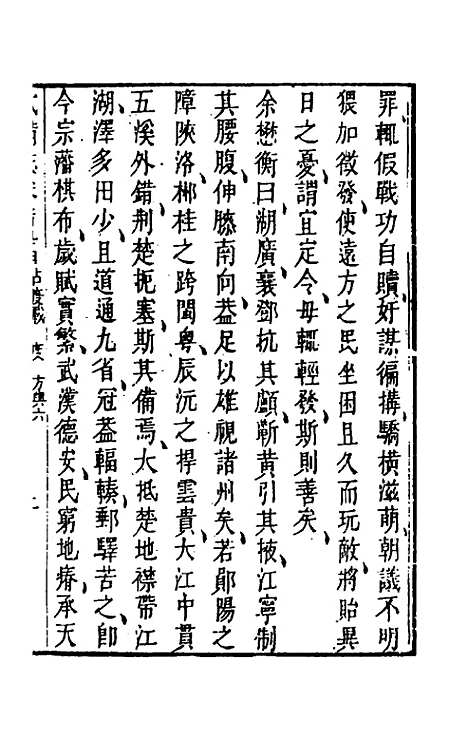 罪輒假戰功自贖奸謀徧搆驕橫滋萌朝議不明
猥加徵發使遠方之民坐困且久而玩敵將貽異
日之憂謂宜定令毋輒輕發斯則善矣
余懋衡曰湖廣襄鄧抗其顱蘄黃引其掖江寧制
其腰腹伸膝南向葢足以雄視諸州矣若鄖陽之
障陜洛郴桂之跨閩粵辰沅之捍雲貴大江中貫
五溪外錯荆楚扼塞斯其備焉大抵楚地襟帶江
湖澤多田少且道通九省冠葢輻輳郵驛苦之卽
今宗藩棋布歲賦實繁武漢德安民窮地瘠承天
占度載 度 方輿六